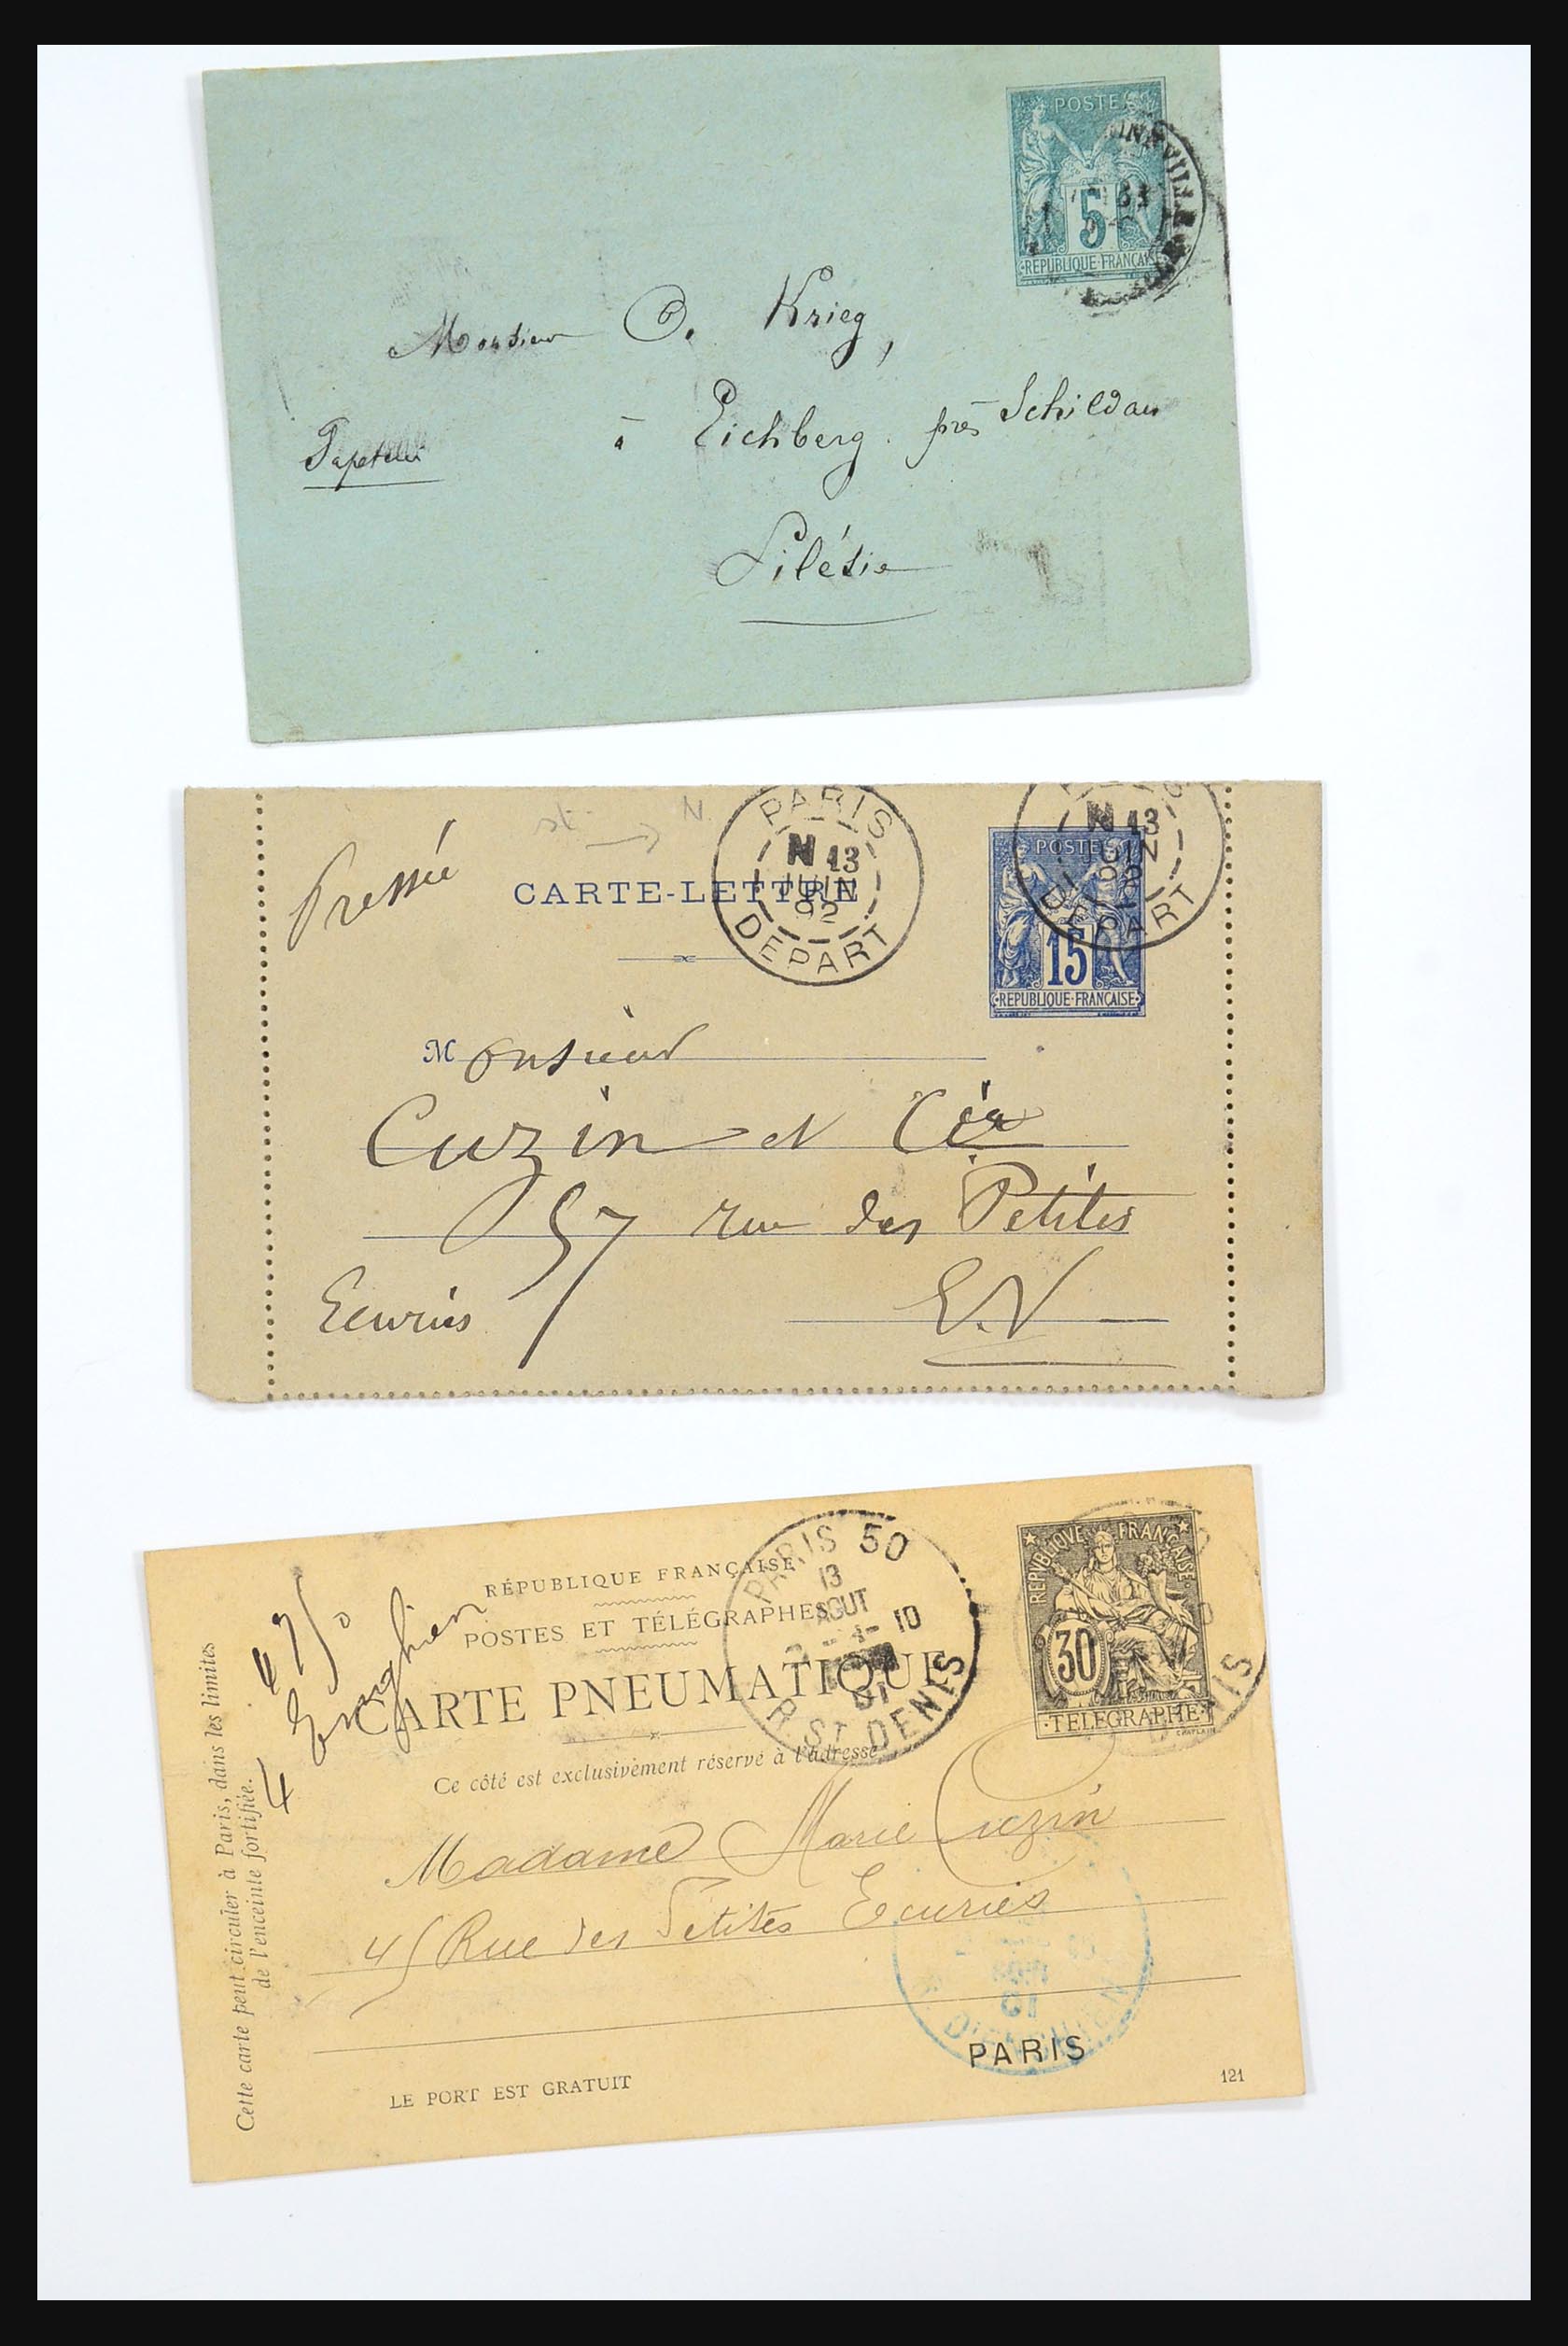 POSTE
5
REPUBLIQUE FRANÇAISE
Monsieur O. Krieg,
à Eichberg près Schildau
Silésie
PARIS
N 13
JUIN
92
DEPART
N 13
JUIN
92
DEPART
Pressée
CARTE-LETTRE
POSTE
15
REPUBLIQUE FRANÇAISE
Monsieur
Cuzin et Cie
57 rue des Petites
Ecuries E.V
PARIS 50
13
AOUT
10
01
R. ST DENIS
REPUBLIQUE FRANÇAISE
30
TELEGRAPHE
CHAPLAIN
RÉPUBLIQUE FRANÇAISE
POSTES ET TÉLÉGRAPHES
CARTE PNEUMATIQUE
Ce côté est exclusivement réservé à l'adresse
4 Enghien
Cette carte peut circuler à Paris, dans les limites
de l'enceinte fortifiée.
Madame Marie Cuzin
45 Rue des Petites Ecuries
PARIS
LE PORT EST GRATUIT
121